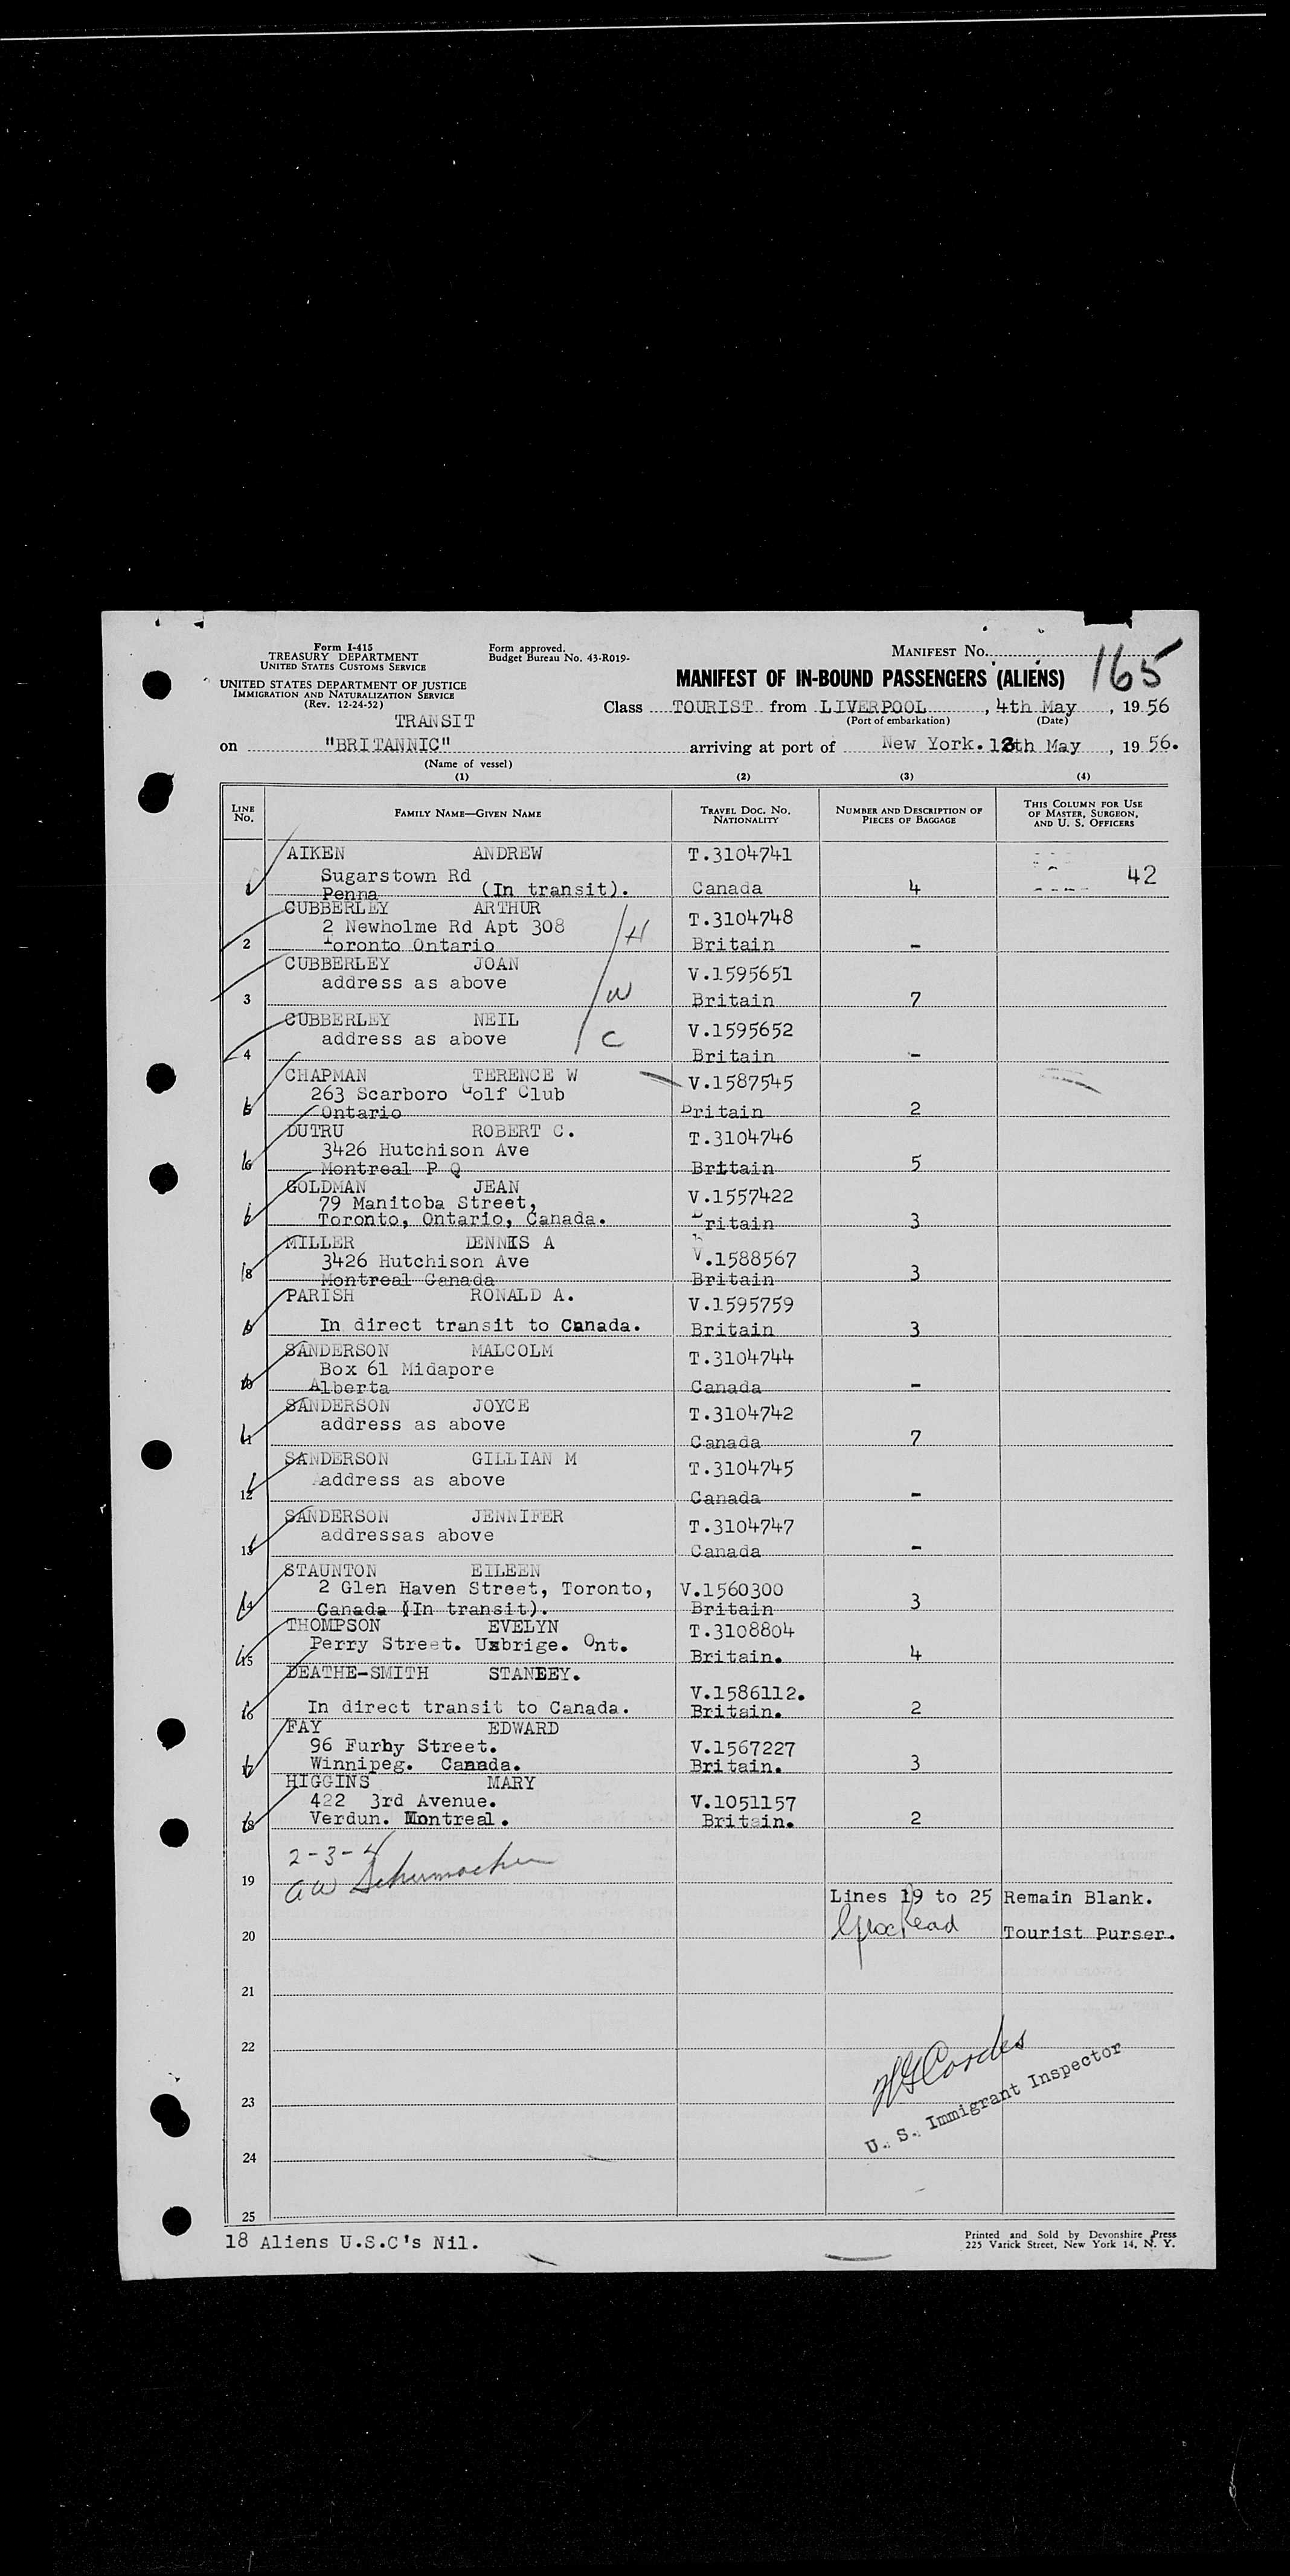 Form I-415
TREASURY DEPARTMENT
UNITED STATES CUSTOMS SERVICE
UNITED STATES DEPARTMENT OF JUSTICE
IMMIGRATION AND NATURALIZATION SERVICE
(Rev. 12-24-52)
Form approved.
Budget Bureau No. 43-R019-
MANIFEST No.
165
MANIFEST OF IN-BOUND PASSENGERS (ALIENS)
Class TOURIST from LIVERPOOL, 4th May, 19 56
(Port of embarkation) (Date)
TRANSIT
on "BRITANNIC" arriving at port of New York. 13th May, 19 56.
(Name of vessel)
(1) (2) (3) (4)
LINE No. FAMILY NAME—GIVEN NAME TRAVEL DOC. NO. NATIONALITY NUMBER AND DESCRIPTION OF PIECES OF BAGGAGE THIS COLUMN FOR USE OF MASTER, SURGEON, AND U. S. OFFICERS
AIKEN ANDREW T.3104741
Sugarstown Rd 42
Penna (In transit). Canada 4
CUBBERLEY ARTHUR T.3104748
2 Newholme Rd Apt 308 H
2 Toronto Ontario Britain -
CUBBERLEY JOAN V.1595651
address as above W
3 Britain 7
CUBBERLEY NEIL V.1595652
address as above C
4 Britain -
CHAPMAN TERENCE W V.1587545
263 Scarboro Golf Club
5 Ontario Britain 2
DUTRU ROBERT C. T.3104746
3426 Hutchison Ave
6 Montreal P Q Brttain 5
GOLDMAN JEAN V.1557422
79 Manitoba Street,
7 Toronto, Ontario, Canada. Britain 3
MILLER DENNIS A V.1588567
3426 Hutchison Ave
8 Montreal Canada Britain 3
PARISH RONALD A. V.1595759
9 In direct transit to Canada. Britain 3
SANDERSON MALCOLM T.3104744
Box 61 Midapore
10 Alberta Canada -
SANDERSON JOYCE T.3104742
address as above
11 Canada 7
SANDERSON GILLIAN M T.3104745
address as above
12 Canada -
SANDERSON JENNIFER T.3104747
addressas above
13 Canada -
STAUNTON EILEEN
2 Glen Haven Street, Toronto, V.1560300
14 Canada (In transit). Britain 3
THOMPSON EVELYN T.3108804
15 Perry Street. Uxbrige. Ont. Britain. 4
DEATHE-SMITH STANEEY. V.1586112.
16 In direct transit to Canada. Britain. 2
FAY EDWARD
96 Furby Street. V.1567227
17 Winnipeg. Canada. Britain. 3
HIGGINS MARY
422 3rd Avenue. V.1051157
18 Verdun. Montreal. Britain. 2
2-3-4
19 A W Schumacher
Lines 19 to 25 Remain Blank.
20 Tourist Purser.
21
22
23
U. S. Immigrant Inspector
24
25
18 Aliens U.S.C's Nil.
Printed and Sold by Devonshire Press
225 Varick Street, New York 14, N. Y.